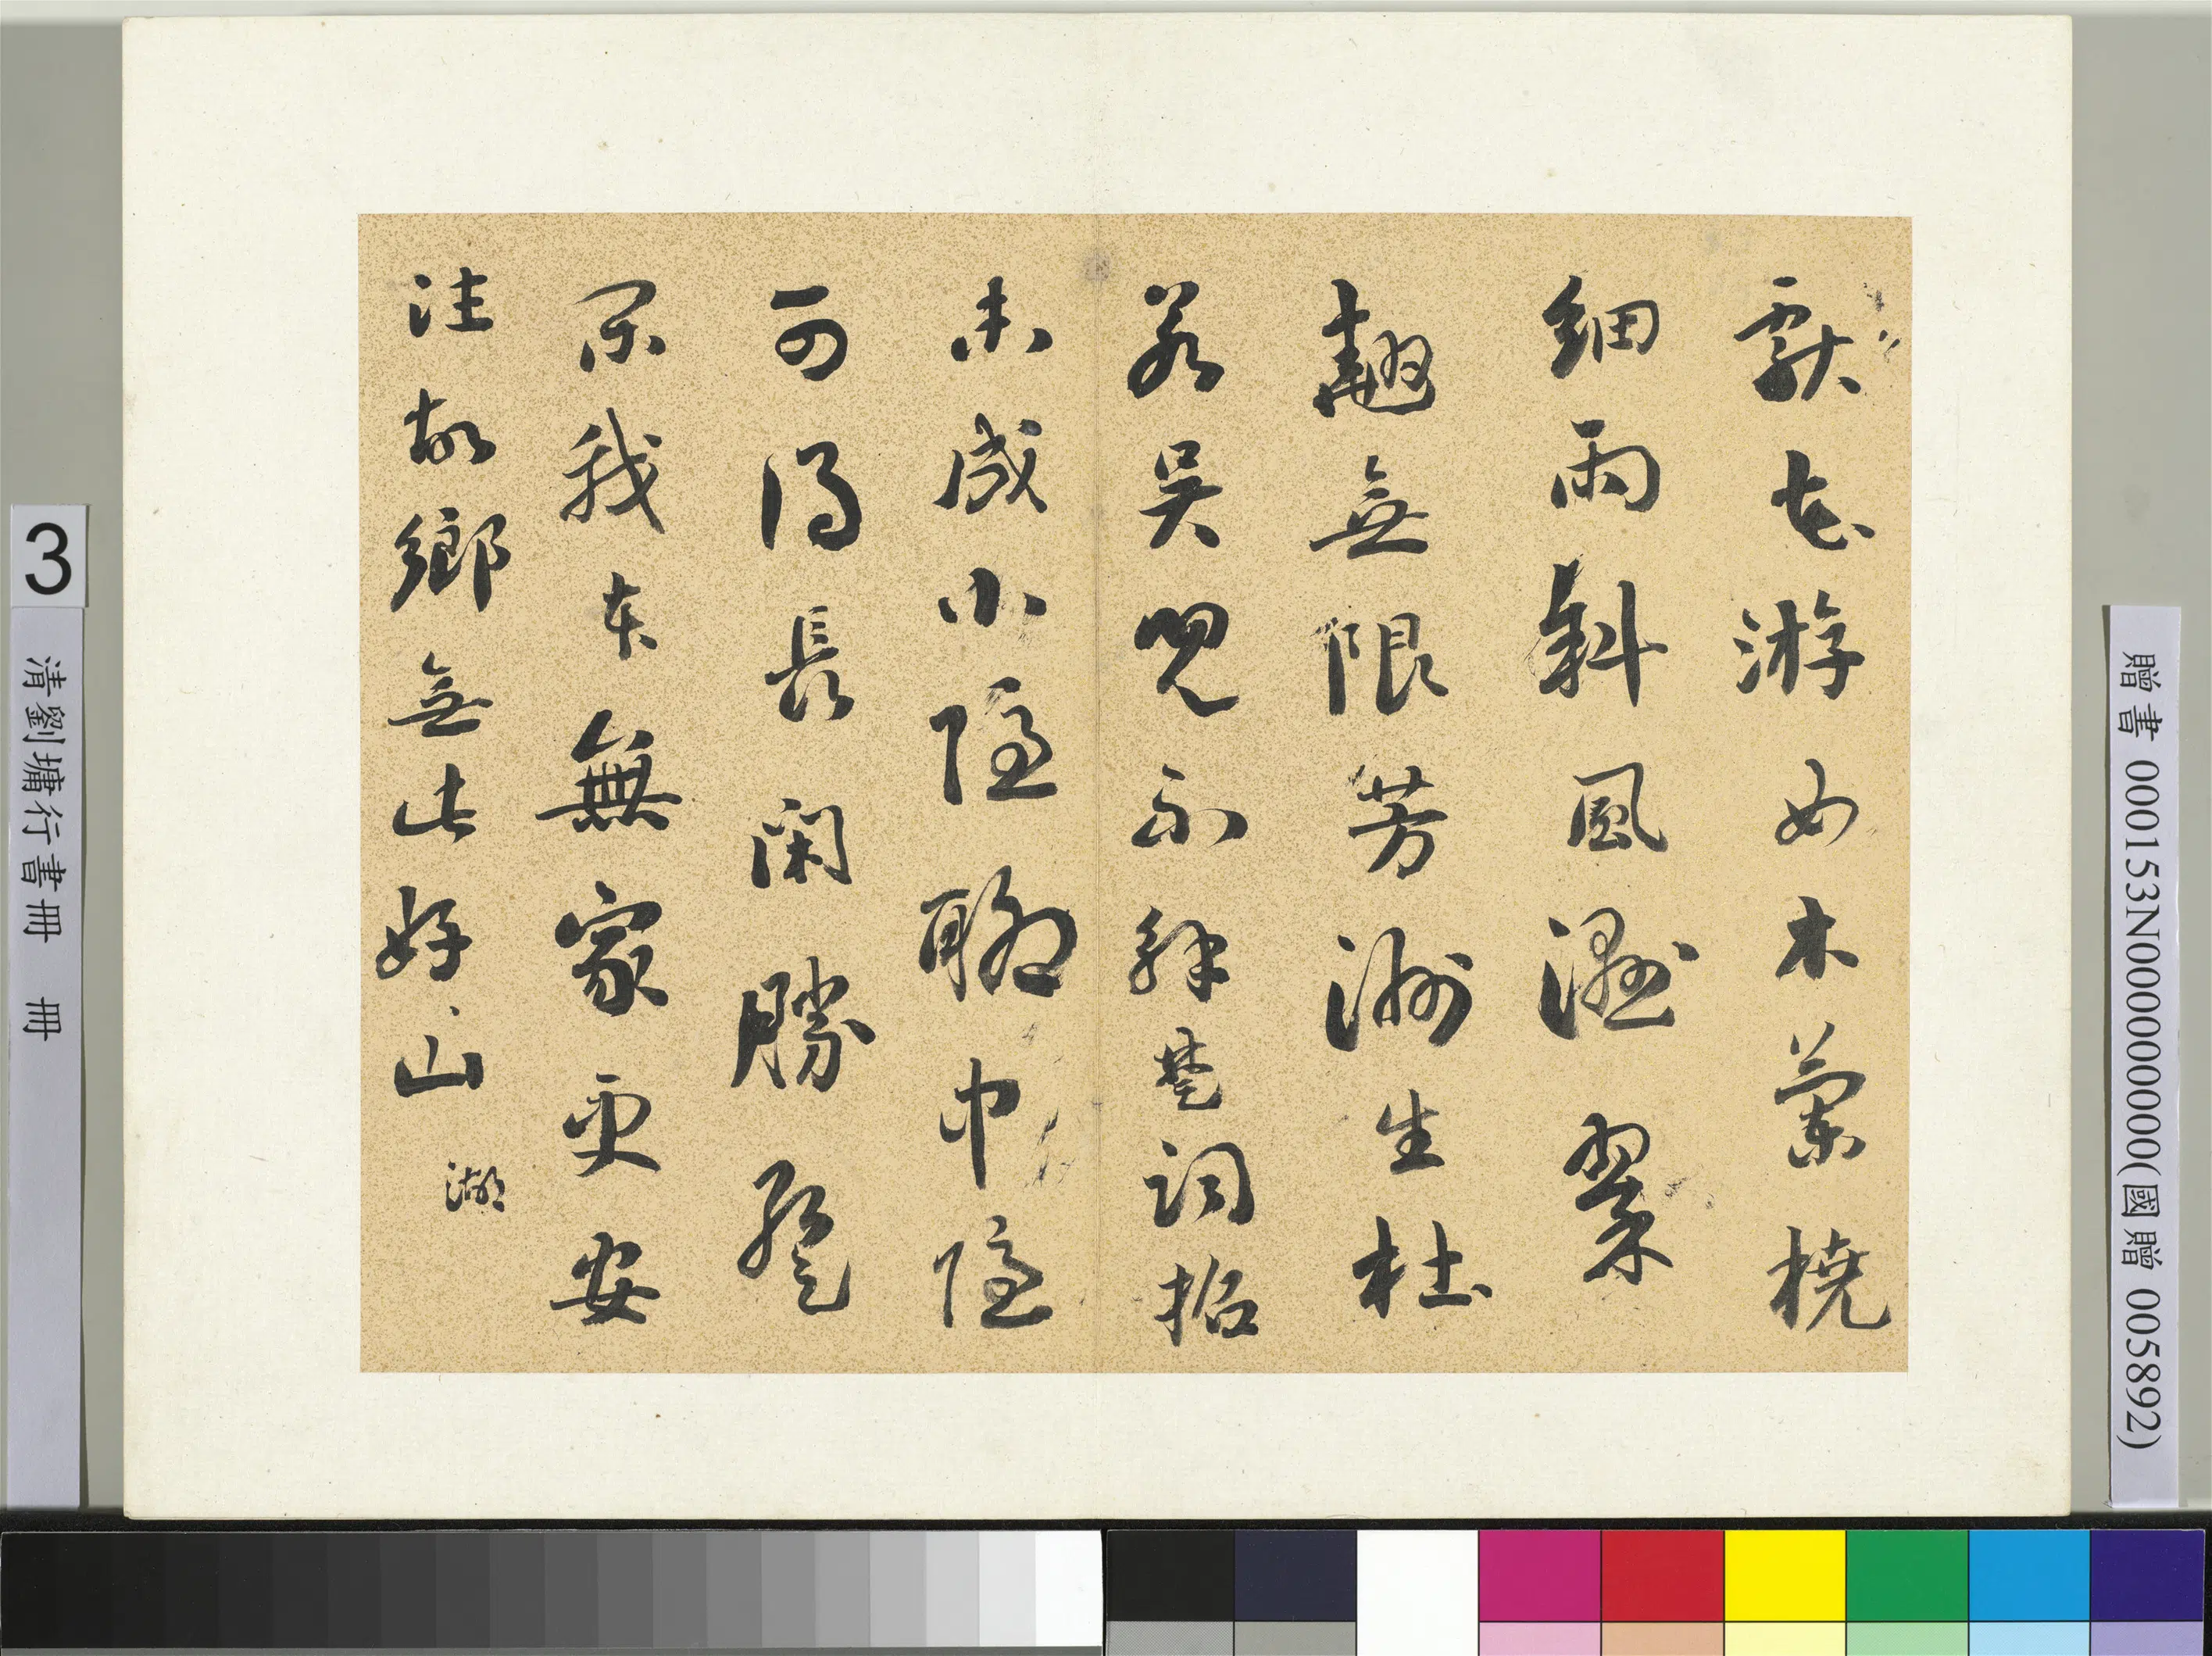 獻花游女木蘭橈
細雨斜風濕翠
翹無限芳洲生杜
若吳兒不解楚詞招
未成小隱聊中隱
可得長閑勝暫
閑我本無家更安
往故鄉無此好山 湖
3
清劉墉行書冊 冊
贈書 000153N000000000(國贈 005892)